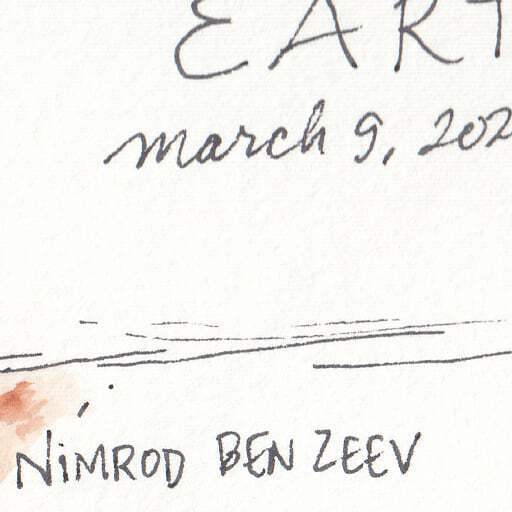 EART
march 9, 202
NiMROD BEN ZEEV